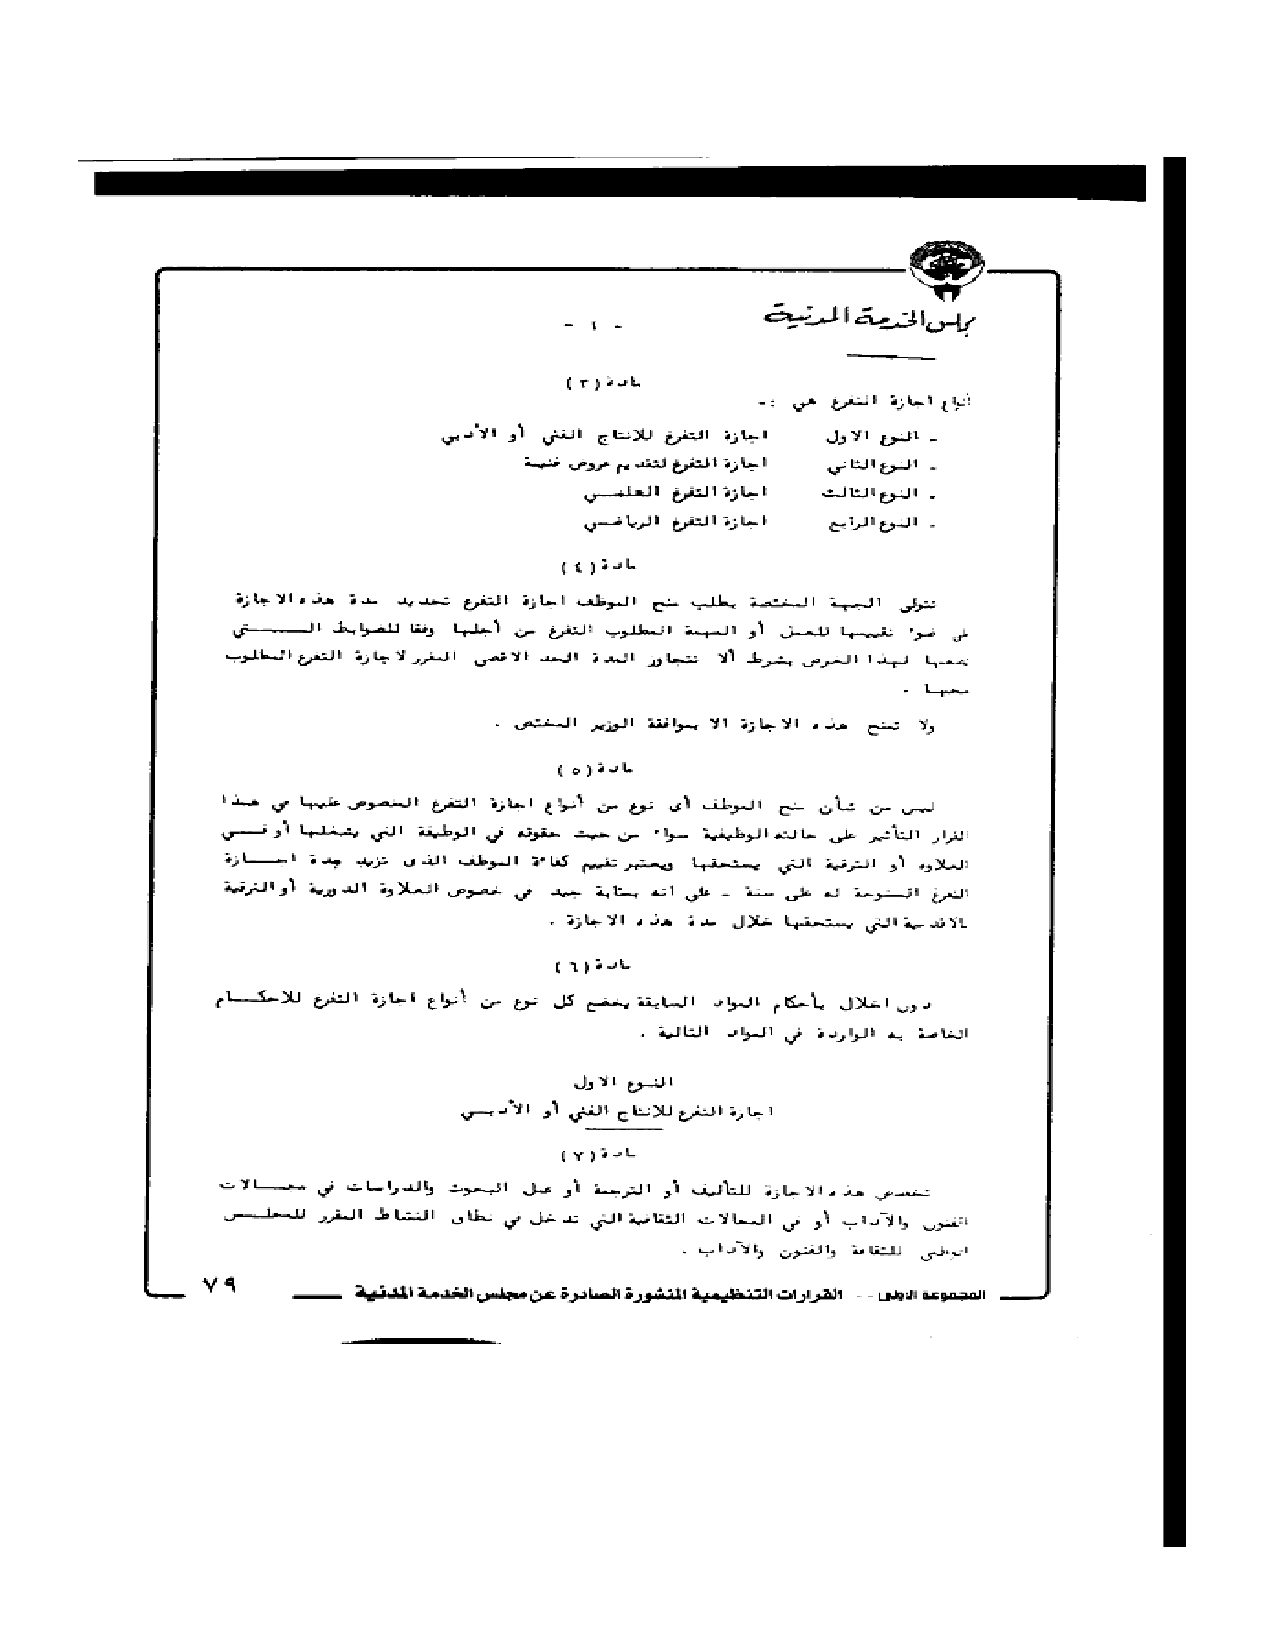 مجلس الخدمة المدنية
مادة (٣)
أنواع اجازة التفرغ هي :-
- النوع الاول اجازة التفرغ للانتاج الفني أو الأدبي
- النوع الثاني اجازة التفرغ لتقديم عروض فنية
- النوع الثالث اجازة التفرغ العلمي
- النوع الرابع اجازة التفرغ الرياضي
مادة (٤)
تتولى الجهة المختصة بطلب منح الموظف اجازة التفرغ تحديد مدة هذه الاجازة
في ضوء تقييمها للعمل أو المهمة المطلوب التفرغ من أجلها وفقا للضوابط التي
تضعها لهذا الغرض بشرط ألا تتجاوز المدة الحد الاقصى المقرر لاجازة التفرغ المطلوب
منحها .
ولا تمنح هذه الاجازة الا بموافقة الوزير المختص .
مادة (٥)
ليس من شأن منح الموظف أى نوع من أنواع اجازة التفرغ المنصوص عليها في هذا
القرار التأثير على حالته الوظيفية سواء من حيث حقوقه في الوظيفة التي يشغلها أو في
العلاوة أو الترقية التي يستحقها ويعتبر تقييم كفاءة الموظف الذى تزيد مدة اجازة
التفرغ الممنوحة له على سنة - على انه بمثابة جيد في خصوص العلاوة الدورية أو الترقية
بالاقدمية التي يستحقها خلال مدة هذه الاجازة .
مادة (٦)
دون اخلال بأحكام المواد السابقة يخضع كل نوع من أنواع اجازة التفرغ للاحكام
الخاصة به الواردة في المواد التالية .
النوع الاول
اجازة التفرغ للانتاج الفني أو الأدبي
مادة (٧)
تخصص هذه الاجازة للتأليف أو الترجمة أو عمل البحوث والدراسات في مجالات
الفنون والآداب أو في المجالات الثقافية التي تدخل في نطاق النشاط المقرر للمجلس
الوطني للثقافة والفنون والآداب .
المجموعة الاولى -- القرارات التنظيمية المنشورة الصادرة عن مجلس الخدمة المدنية ٧٩